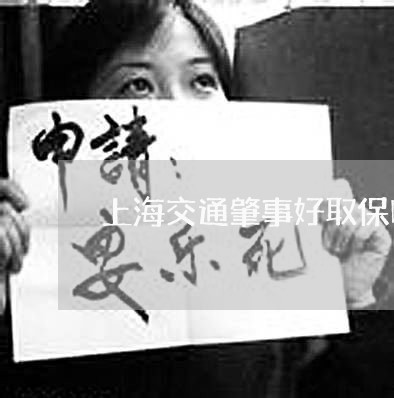 申請：
上海交通肇事好取保
安乐死